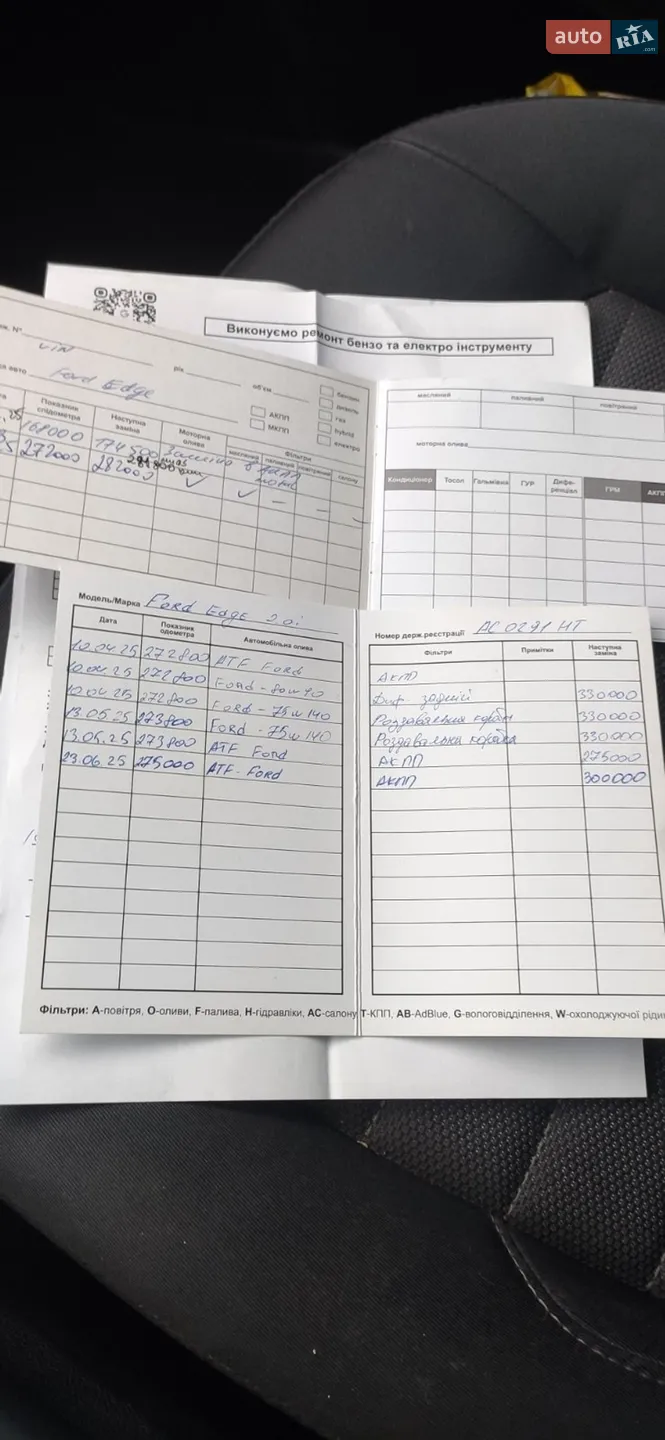 auto RIA.com
Виконуємо ремонт бензо та електро інструменту
VIN
рік
об'єм
авто Ford Edge
АКПП
МКПП
бензин
дизель
газ
hybrid
електро
Показник спідометра
Наступна заміна
Моторна олива
Фільтри
масляний
паливний
повітряний
салону
168000 174500 Заміна в АКПП
272000 282000 ✓ ✓ — —
масляний паливний повітряний
моторна олива
Кондиціонер Тосол Гальмівка ГУР Дифе-ренціал ГРМ АКП
Модель/Марка Ford Edge 2.0i
Номер держ.реєстрації АС 0291 НТ
Дата Показник одометра Автомобільна олива Фільтри Примітки Наступна заміна
10.04.25 272800 ATF Ford АКПП
10.04.25 272800 Ford - 80w90 Диф. задній 330000
10.04.25 272800 Ford - 75w140 Роздавальна коробка 330000
13.05.25 273800 Ford - 75w140 Роздавальна коробка 330000
13.05.25 273800 ATF Ford АКПП 275000
23.06.25 275000 ATF - Ford АКПП 300000
Фільтри: A-повітря, O-оливи, F-палива, H-гідравліки, AC-салону T-КПП, AB-AdBlue, G-вологовідділення, W-охолоджуючої рідин